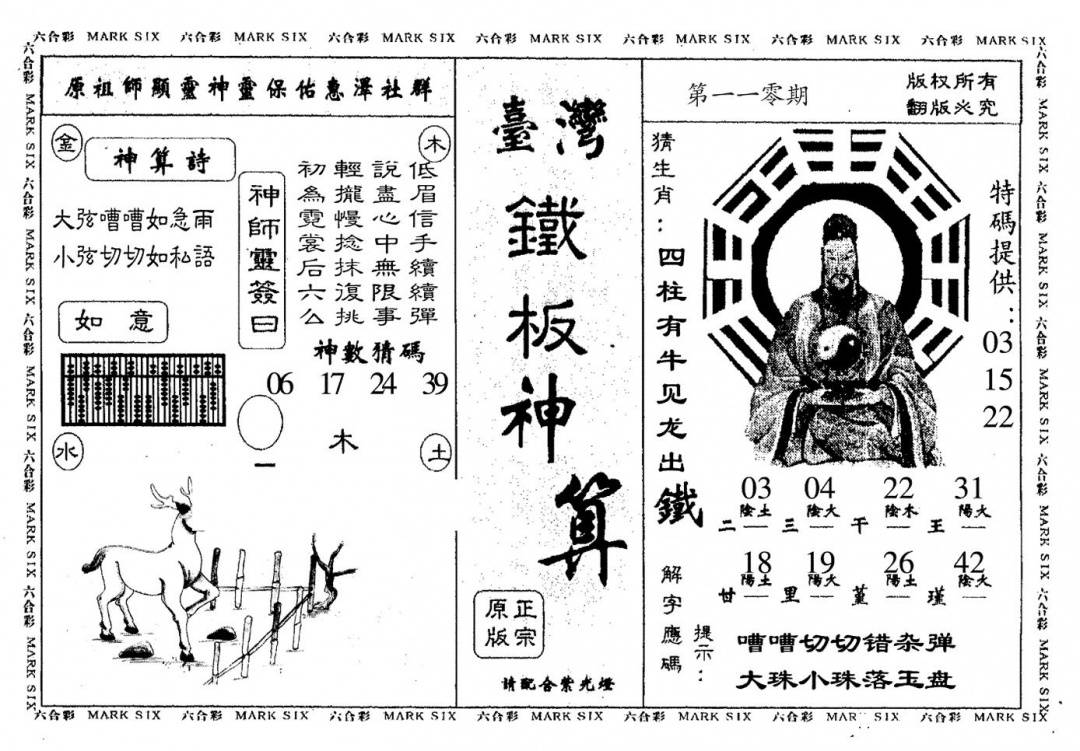 六合彩 MARK SIX 六合彩 MARK SIX 六合彩 MARK SIX 六合彩 MARK SIX 六合彩 MARK SIX 六合彩 MARK SIX 六合彩 MARK SIX
原祖師顯靈神靈保佑惠澤社群
金
木
神算詩
大弦嘈嘈如急雨
小弦切切如私語
如意
神師靈簽曰
低眉信手續續彈
說盡心中無限事
輕攏慢捻抹復挑
初為霓裳后六么
神數猜碼
06 17 24 39
木
水
土
臺灣
鐵板神算
正宗
原版
請配合紫光燈
第一一零期
版权所有
翻版必究
猜生肖：四柱有牛见龙出鐵
特碼提供：
03
15
22
03 04 22 31
陰土 陰火 陰木 陽火
二 三 干 王
18 19 26 42
陽土 陽火 陽土 陰火
甘 里 堇 瑾
解字應碼
提示：
嘈嘈切切错杂弹
大珠小珠落玉盘
六合彩 MARK SIX 六合彩 MARK SIX 六合彩 MARK SIX 六合彩 MARK SIX 六合彩 MARK SIX
六合彩 MARK SIX 六合彩 MARK SIX 六合彩 MARK SIX 六合彩 MARK SIX 六合彩 MARK SIX
六合彩 MARK SIX 六合彩 MARK SIX 六合彩 MARK SIX 六合彩 MARK SIX 六合彩 MARK SIX 六合彩 MARK SIX 六合彩 MARK SIX